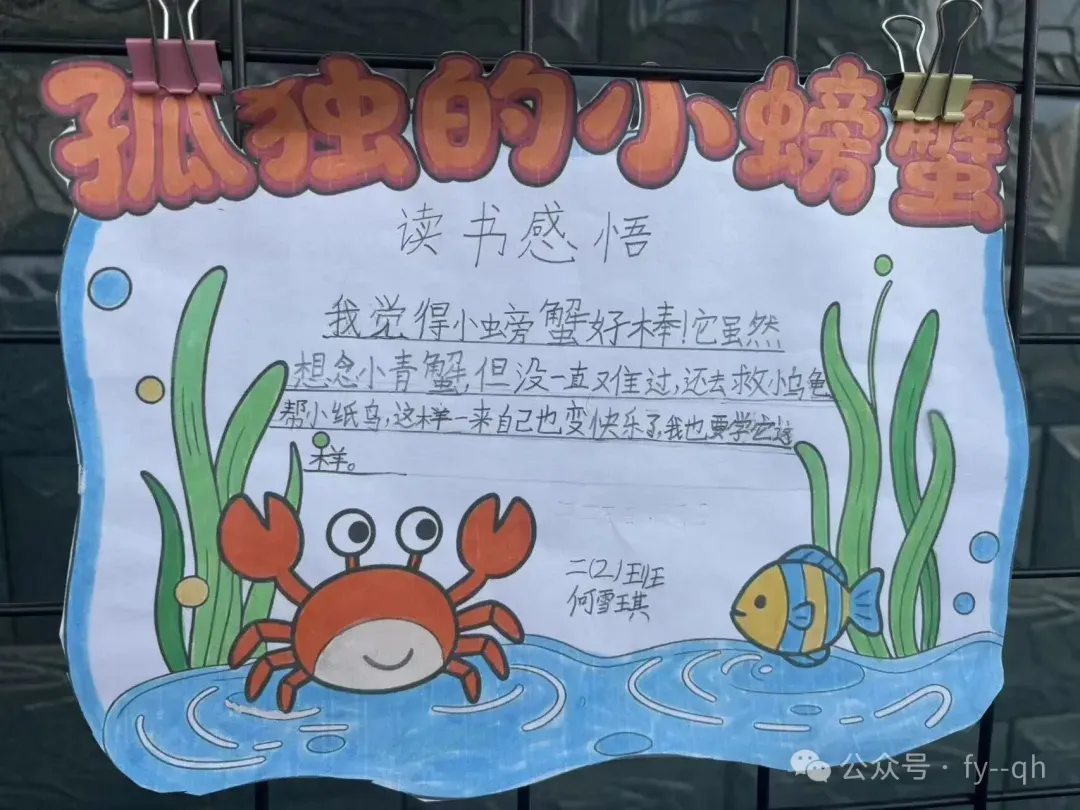 孤独的小螃蟹
读书感悟
我觉得小螃蟹好棒!它虽然
想念小青蟹,但没一直难过,还去救小乌龟
帮小纸鸟,这样一来自己也变快乐了,我也要学它这
样。
二(2)班
何雪琪
公众号·fy--qh